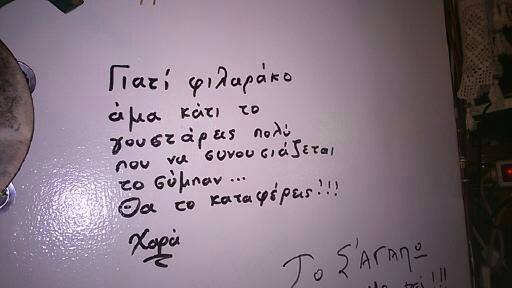 Γιατί φιλαράκο
άμα κάτι το
γουστάρεις πολύ
που να συνουσιάζεται
το σύμπαν...
Θα το καταφέρεις!!!
Χαρά
Το Σ'ΑΓΑΠΩ